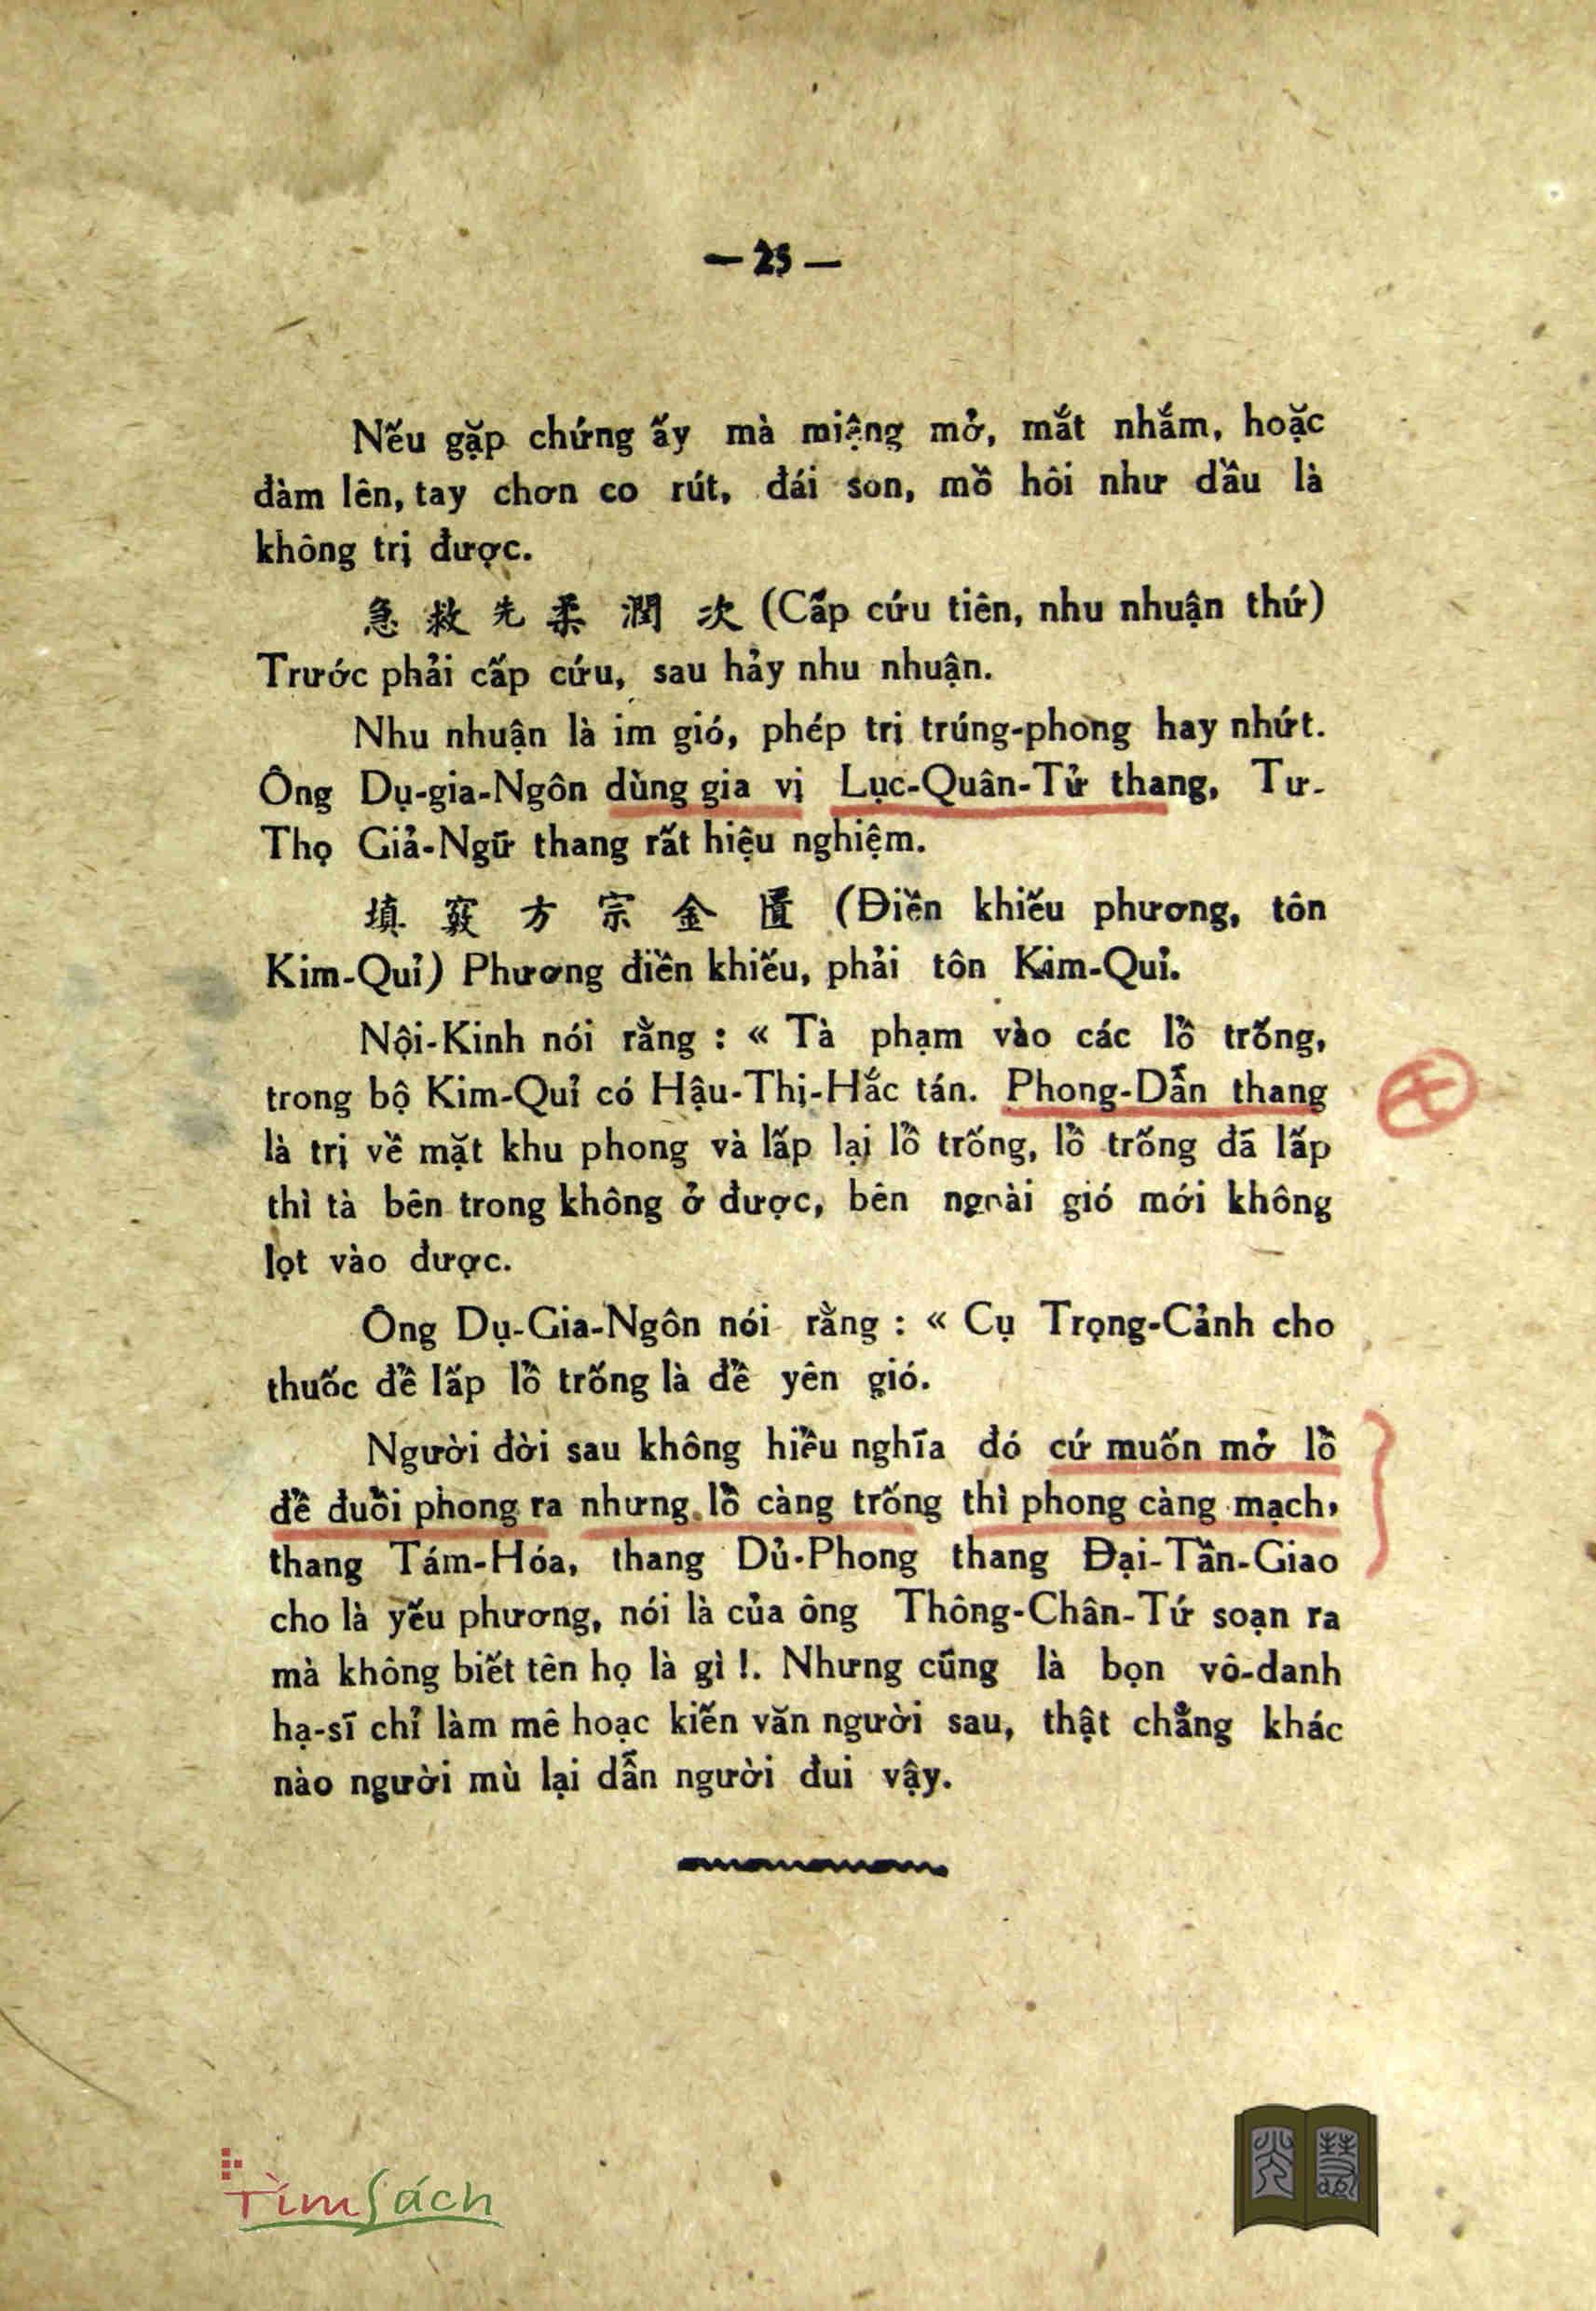 — 25 —
Nếu gặp chứng ấy mà miệng mở, mắt nhắm, hoặc
đàm lên, tay chơn co rút, đái son, mồ hôi như dầu là
không trị được.
急 救 先 柔 潤 次 (Cấp cứu tiên, nhu nhuận thứ)
Trước phải cấp cứu, sau hảy nhu nhuận.
Nhu nhuận là im gió, phép trị trúng-phong hay nhứt.
Ông Dụ-gia-Ngôn dùng gia vị Lục-Quân-Tử thang, Tư-
Thọ Giả-Ngữ thang rất hiệu nghiệm.
填 竅 方 宗 金 匱 (Điền khiếu phương, tôn
Kim-Quỉ) Phương điền khiếu, phải tôn Kim-Quỉ.
Nội-Kinh nói rằng : « Tà phạm vào các lỗ trống,
trong bộ Kim-Quỉ có Hậu-Thị-Hắc tán. Phong-Dẫn thang
là trị về mặt khu phong và lấp lại lỗ trống, lỗ trống đã lấp
thì tà bên trong không ở được, bên ngoài gió mới không
lọt vào được.
Ông Dụ-Gia-Ngôn nói rằng : « Cụ Trọng-Cảnh cho
thuốc để lấp lỗ trống là để yên gió.
Người đời sau không hiểu nghĩa đó cứ muốn mở lỗ
để đuổi phong ra nhưng lỗ càng trống thì phong càng mạch,
thang Tám-Hóa, thang Dủ-Phong thang Đại-Tần-Giao
cho là yếu phương, nói là của ông Thông-Chân-Tứ soạn ra
mà không biết tên họ là gì !. Nhưng cũng là bọn vô-danh
hạ-sĩ chỉ làm mê hoạc kiến văn người sau, thật chẳng khác
nào người mù lại dẫn người đui vậy.
TìmSách